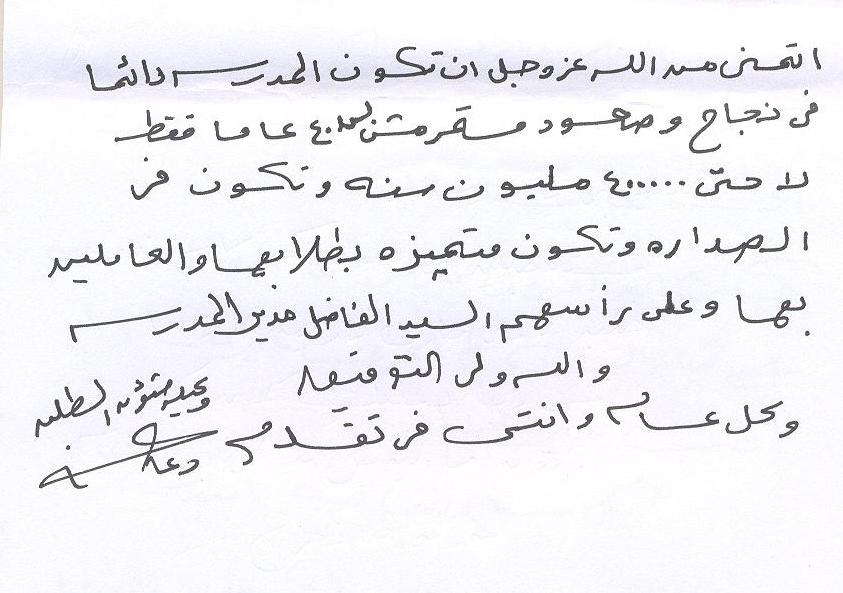 اتمنى من الله عز وجل ان تكون المدرسه دائما
فى نجاح وصعود مستمر مش لمده ٤٠ عاما فقط
لا حتى ٤٠٠٠٠٠ مليون سنه وتكون فى
الصداره وتكون متميزه بطلابها والعاملين
بها وعلى رأسهم السيد الفاضل مدير المدرسه
والله ولى التوفيق
وكل عام وانتى فى تقدم
شئون الطلبه